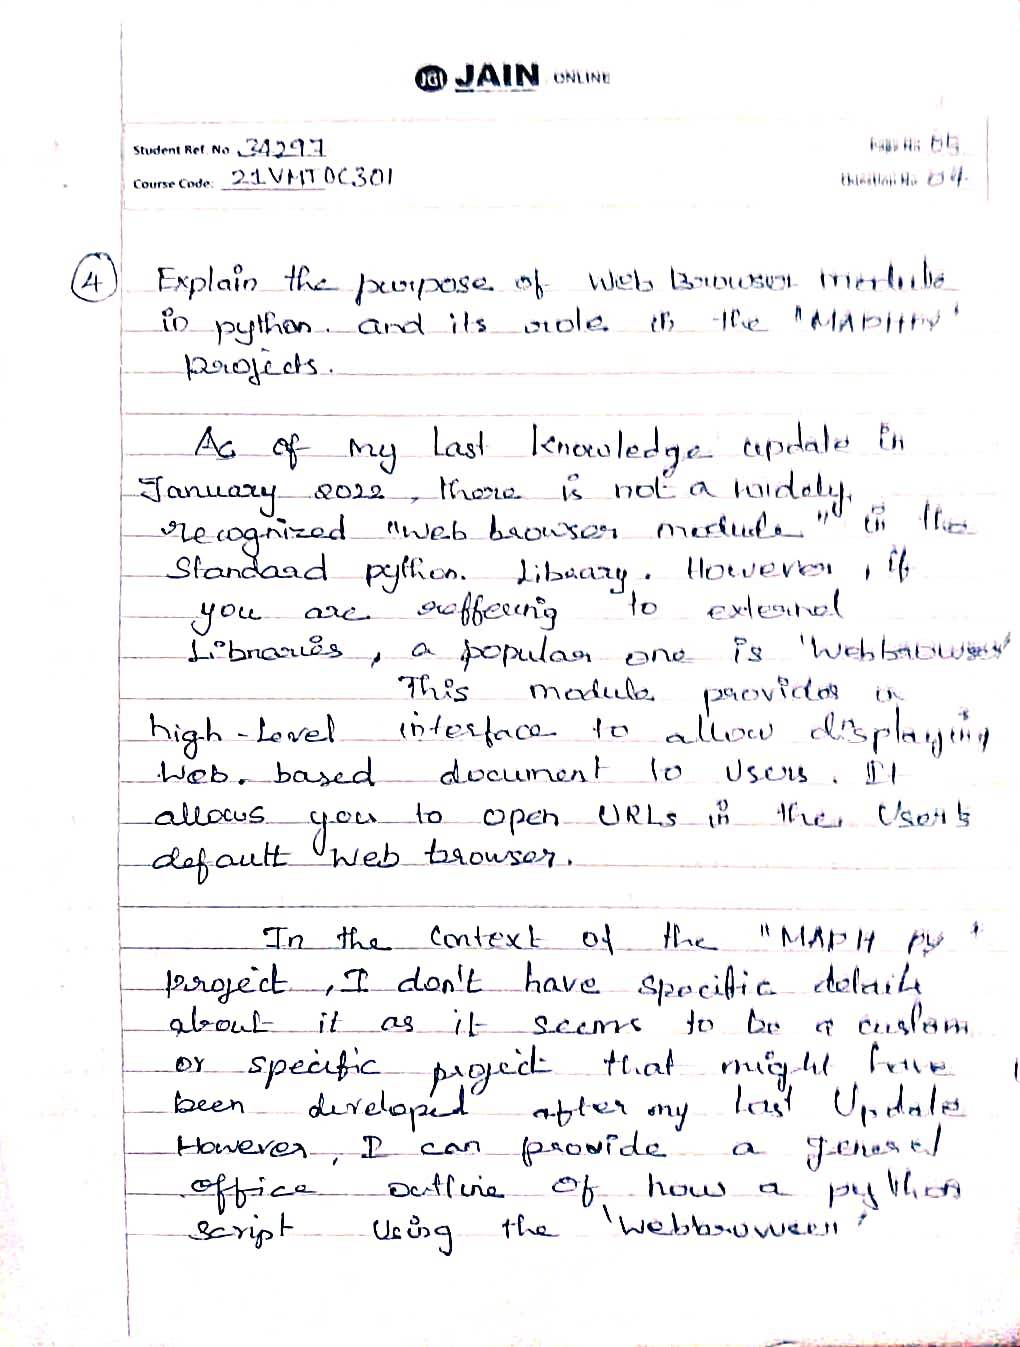 JGI JAIN ONLINE
Student Ref. No 34297
Course Code: 21VMT0C301
4 Explain the purpose of Web Browser module
in python. and its role in the "MAPIT.PY"
projects.
As of my last knowledge update in
January 2022, there is not a widely,
recognized "web browser module" in the
Standard python. Library. However, if
you are reffering to external
Libraries, a popular one is 'Webbrowser'
This module provides a
high-Level interface to allow displaying
Web. based document to Users. It
allows you to open URLs in the User's
default Web browser.
In the Context of the "MAPIT PY"
project, I don't have specific details
about it as it seems to be a custom
or specific project that might have
been developed after my last Update
However, I can provide a general
office outline of how a python
script Using the 'Webbrowser'